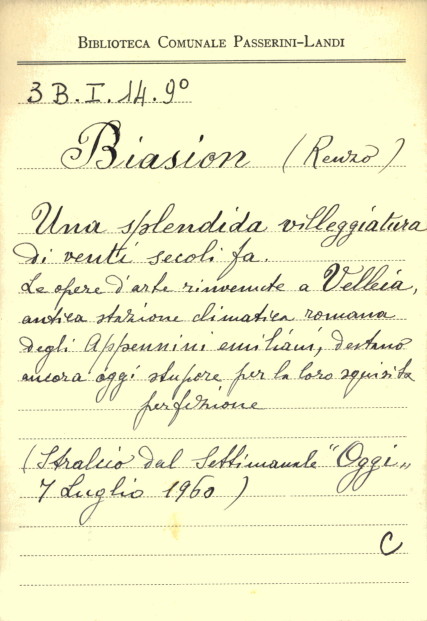 BIBLIOTECA COMUNALE PASSERINI-LANDI
3 B. I. 14. 9º
Biasion (Renzo)
Una splendida villeggiatura
di venti secoli fa.
Le opere d'arte rinvenute a Velleia,
antica stazione climatica romana
degli Appennini emiliani, destano
ancora oggi stupore per la loro squisita
perfezione
(Stralcio dal Settimanale "Oggi„
7 Luglio 1960)
C